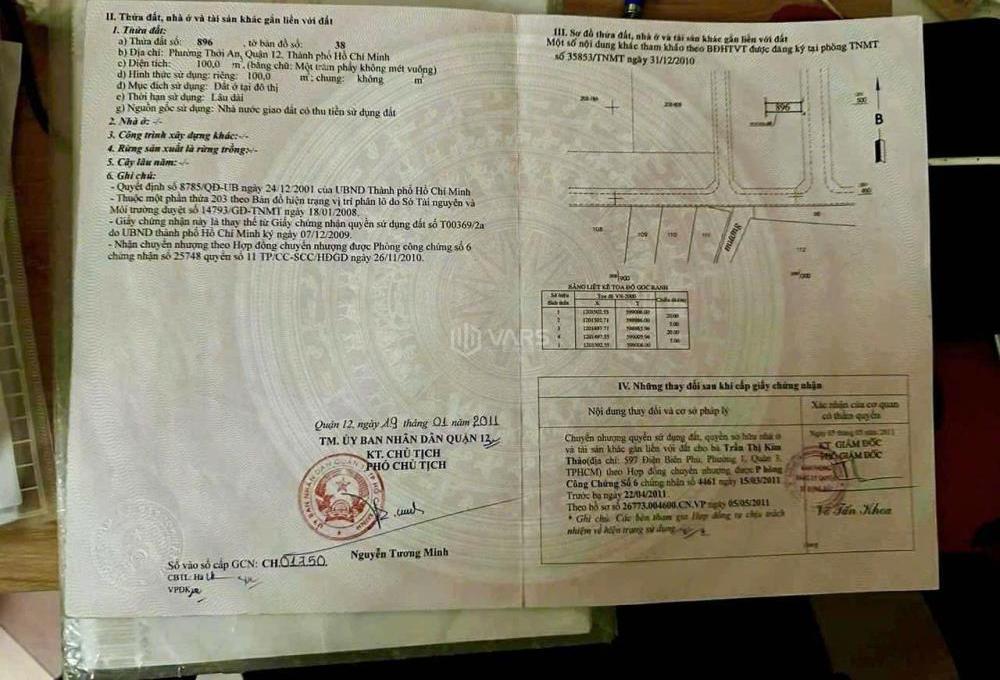 II. Thửa đất, nhà ở và tài sản khác gắn liền với đất
1. Thửa đất:
a) Thửa đất số: 896 , tờ bản đồ số: 38
b) Địa chỉ: Phường Thới An, Quận 12, Thành phố Hồ Chí Minh
c) Diện tích: 100,0 m², (bằng chữ: Một trăm phẩy không mét vuông)
d) Hình thức sử dụng: riêng: 100,0 m²; chung: không m²
đ) Mục đích sử dụng: Đất ở tại đô thị
e) Thời hạn sử dụng: Lâu dài
g) Nguồn gốc sử dụng: Nhà nước giao đất có thu tiền sử dụng đất
2. Nhà ở: -/-
3. Công trình xây dựng khác:-/-
4. Rừng sản xuất là rừng trồng:-/-
5. Cây lâu năm: -/-
6. Ghi chú:
- Quyết định số 8785/QĐ-UB ngày 24/12/2001 của UBND Thành phố Hồ Chí Minh
- Thuộc một phần thửa 203 theo Bản đồ hiện trạng vị trí phân lô do Sở Tài nguyên và
Môi trường duyệt số 14793/GĐ-TNMT ngày 18/01/2008.
- Giấy chứng nhận này là thay thế từ Giấy chứng nhận quyền sử dụng đất số T00369/2a
do UBND thành phố Hồ Chí Minh ký ngày 07/12/2009.
- Nhận chuyển nhượng theo Hợp đồng chuyển nhượng được Phòng công chứng số 6
chứng nhận số 25748 quyển số 11 TP/CC-SCC/HĐGD ngày 26/11/2010.
VARS
Quận 12, ngày 19 tháng 01 năm 2011
TM. ỦY BAN NHÂN DÂN QUẬN 12
KT. CHỦ TỊCH
PHÓ CHỦ TỊCH
Nguyễn Tương Minh
Số vào sổ cấp GCN: CH 01750.
CBTL: Hà
VPĐK
III. Sơ đồ thửa đất, nhà ở và tài sản khác gắn liền với đất
Một số nội dung khác tham khảo theo BĐHTVT được đăng ký tại phòng TNMT
số 35853/TNMT ngày 31/12/2010
896
B
108
109
110
111
mương
98
112
BẢNG LIỆT KÊ TỌA ĐỘ GÓC RANH
Số hiệu
điểm
Tọa độ VN-2000
X
Y
20.00
5.00
20.00
5.00
IV. Những thay đổi sau khi cấp giấy chứng nhận
Nội dung thay đổi và cơ sở pháp lý
Xác nhận của cơ quan
có thẩm quyền
Chuyển nhượng quyền sử dụng đất, quyền sở hữu nhà ở
và tài sản khác gắn liền với đất cho bà Trần Thị Kim
Thảo(địa chỉ: 597 Điện Biên Phủ, Phường 1, Quận 3,
TPHCM) theo Hợp đồng chuyển nhượng được Phòng
Công Chứng Số 6 chứng nhận số 4461 ngày 15/03/2011
Trước bạ ngày 22/04/2011.
Theo hồ sơ 26773.004600.CN.VP ngày 05/05/2011
* Ghi chú: Các bên tham gia Hợp đồng tự chịu trách
nhiệm về hiện trạng sử dụng.
Ngày 05 tháng 05 năm 2011
KT GIÁM ĐỐC
PHÓ GIÁM ĐỐC
Võ Tấn Khoa